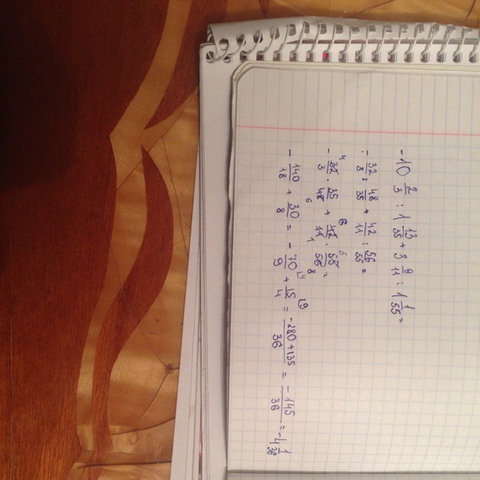 - 10 2/3 : 1 13/35 + 3 9/11 : 1 1/55 =
- 32/3 : 48/35 + 42/11 : 56/55 =
- 32/3 · 35/48 + 42/11 · 55/56 =
- 140/18 + 30/8 = - 70/9 + 15/4 = -280+135/36 = -145/36 = -4 1/36